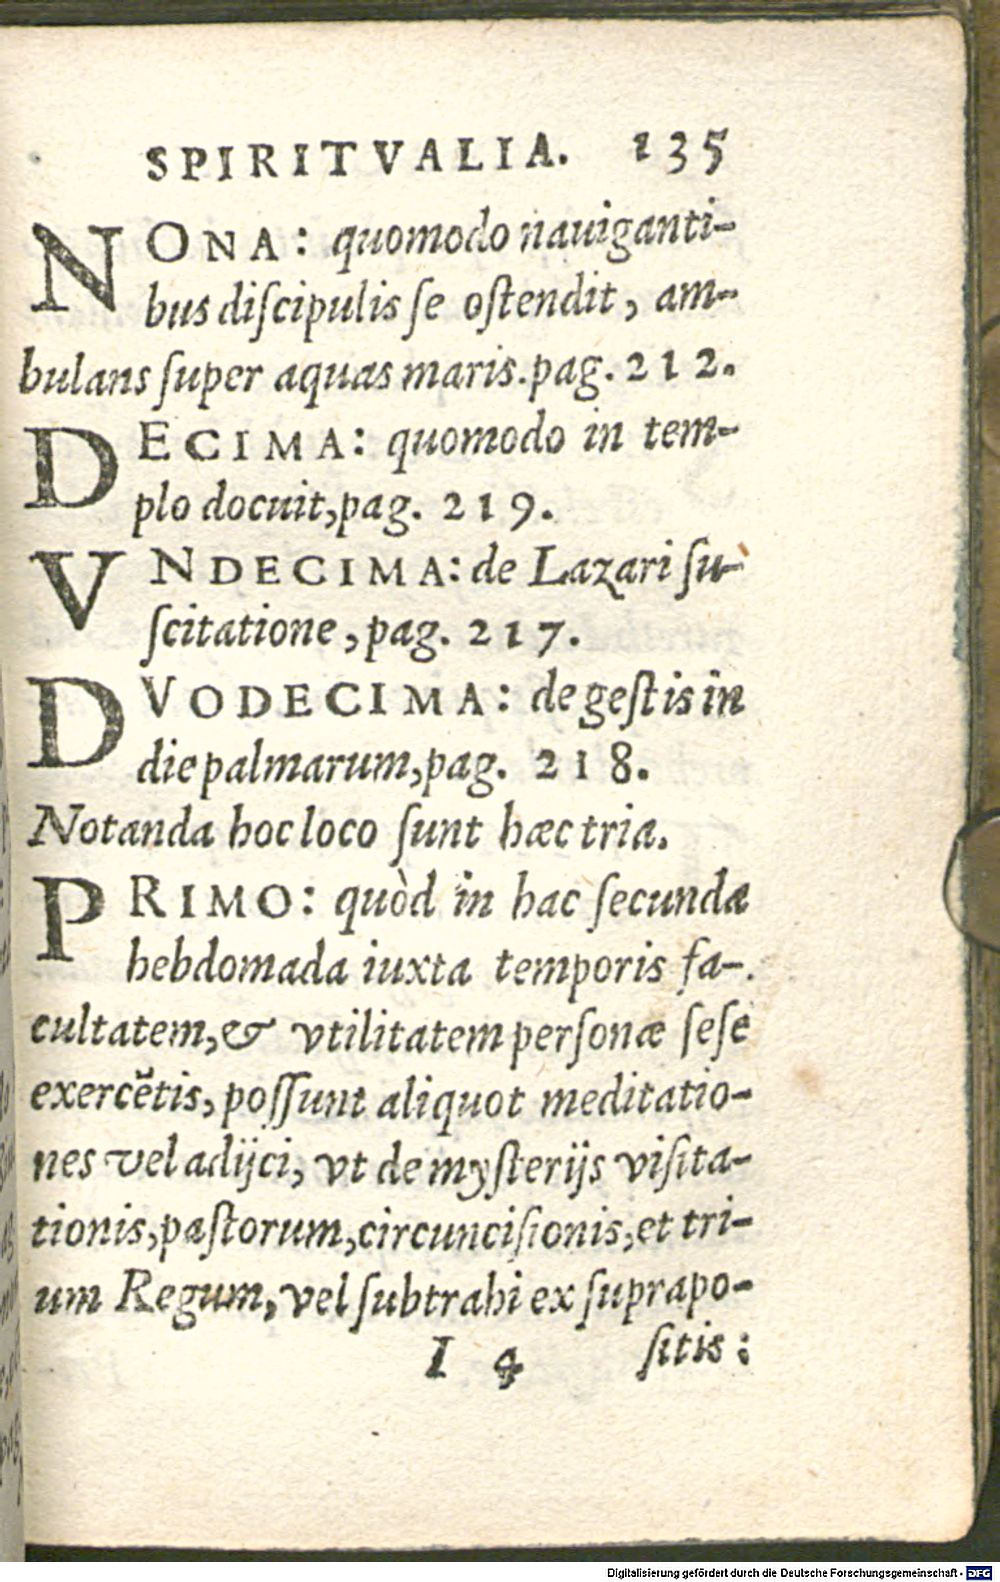 SPIRITVALIA. 135
NONA: quomodo nauiganti-
bus diſcipulis ſe oſtendit, am-
bulans ſuper aquas maris.pag. 212.
DECIMA: quomodo in tem-
plo docuit,pag. 219.
VNDECIMA: de Lazari ſu-
ſcitatione, pag. 217.
DVODECIMA: de geſtis in
die palmarum,pag. 218.
Notanda hoc loco ſunt hæc tria.
PRIMO: quòd in hac ſecunda
hebdomada iuxta temporis fa-
cultatem,& vtilitatem perſonæ ſeſe
exercētis, poſſunt aliquot meditatio-
nes vel adijci, vt de myſterijs viſita-
tionis,paſtorum,circunciſionis,et tri-
um Regum, vel ſubtrahi ex ſuprapo-
I 4 ſitis:
Digitalisierung gefördert durch die Deutsche Forschungsgemeinschaft - DFG